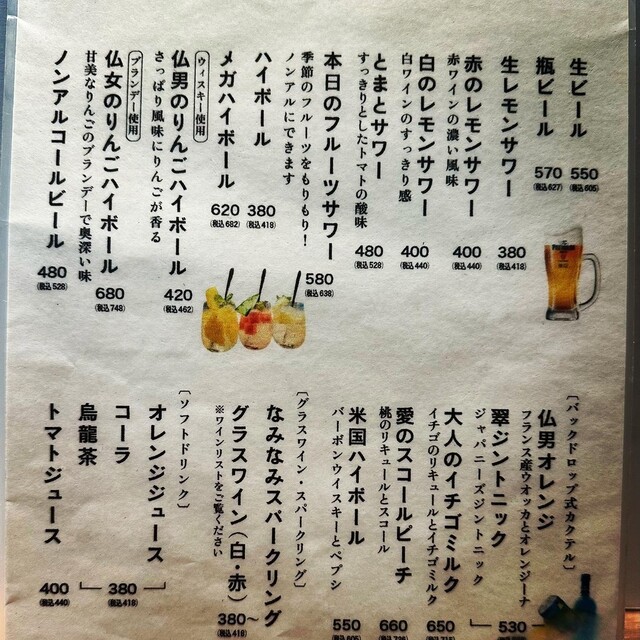 生ビール
550
(税込605)
瓶ビール
570
(税込627)
生レモンサワー
380
(税込418)
赤のレモンサワー
赤ワインの濃い風味
400
(税込440)
白のレモンサワー
白ワインのすっきり感
400
(税込440)
とまとサワー
すっきりとしたトマトの酸味
480
(税込528)
本日のフルーツサワー
季節のフルーツをもりもり!
ノンアルにできます
580
(税込638)
ハイボール
380
(税込418)
メガハイボール
620
(税込682)
ウィスキー使用
仏男のりんごハイボール
さっぱり風味にりんごが香る
420
(税込462)
ブランデー使用
仏女のりんごハイボール
甘美なりんごのブランデーで奥深い味
680
(税込748)
ノンアルコールビール
480
(税込528)
〔バックドロップ式カクテル〕
仏男オレンジ
フランス産ウオッカとオレンジーナ
翠ジントニック
ジャパニーズジントニック
530
大人のイチゴミルク
イチゴのリキュールとイチゴミルク
650
愛のスコールピーチ
桃のリキュールとスコール
660
米国ハイボール
バーボンウイスキーとペプシ
550
(税込605)
〔グラスワイン・スパークリング〕
なみなみスパークリング
グラスワイン(白・赤)
※ワインリストをご覧ください
380〜
(税込418)
〔ソフトドリンク〕
オレンジジュース
コーラ
烏龍茶
380
(税込418)
トマトジュース
400
(税込440)